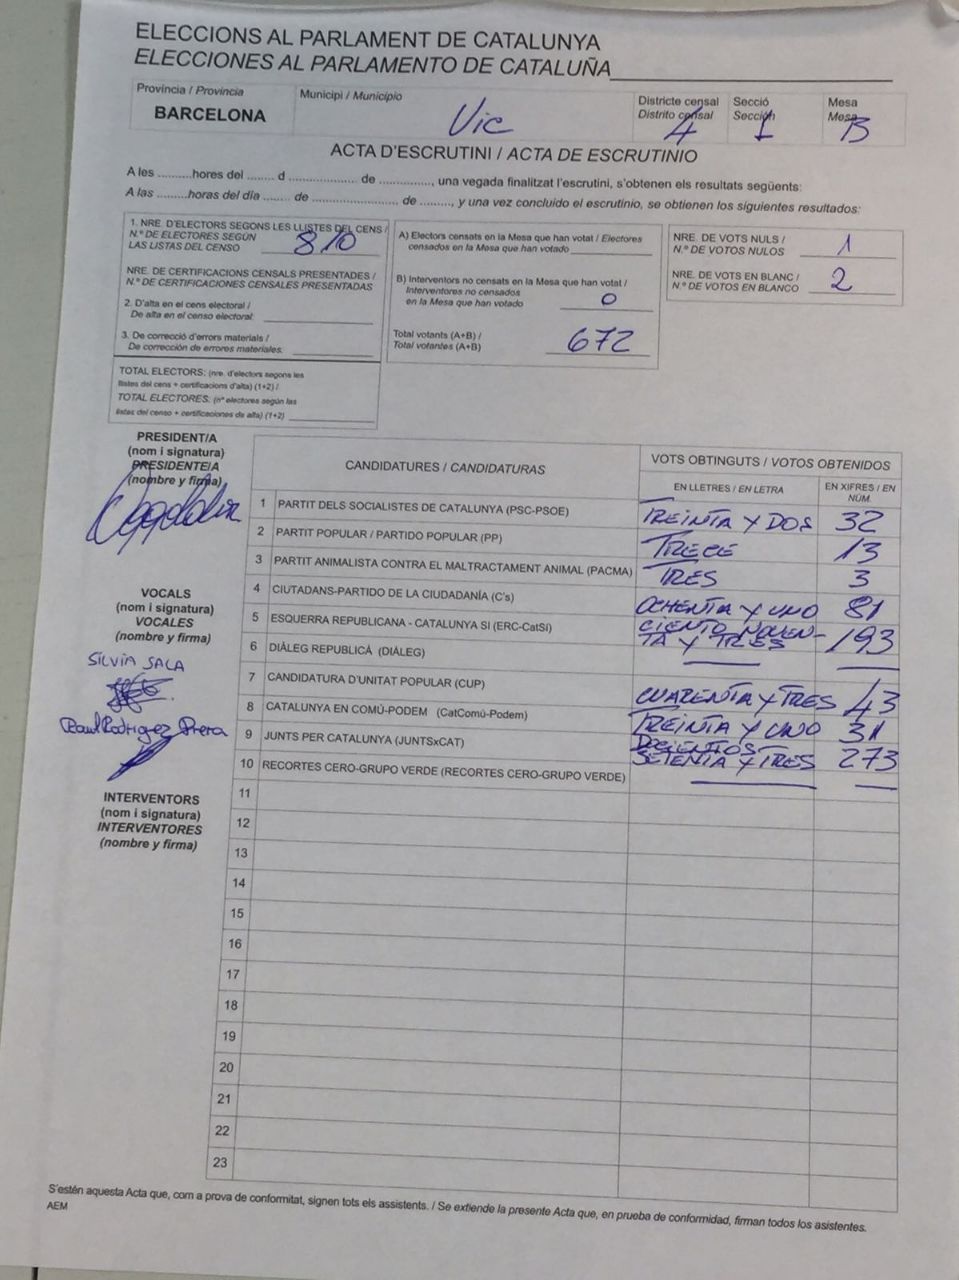 ELECCIONS AL PARLAMENT DE CATALUNYA
ELECCIONES AL PARLAMENTO DE CATALUÑA
Província / Provincia
BARCELONA
Municipi / Municipio
Vic
Districte censal
Distrito censal
4
Secció
Sección
1
Mesa
Mesa
B
ACTA D'ESCRUTINI / ACTA DE ESCRUTINIO
A les .........hores del ....... d ................... de .............., una vegada finalitzat l'escrutini, s'obtenen els resultats següents:
A las .........horas del día ....... de ..................... de ........, y una vez concluido el escrutinio, se obtienen los siguientes resultados:
1. NRE. D'ELECTORS SEGONS LES LLISTES DEL CENS /
N.º DE ELECTORES SEGÚN
LAS LISTAS DEL CENSO
810
NRE. DE CERTIFICACIONS CENSALS PRESENTADES /
N.º DE CERTIFICACIONES CENSALES PRESENTADAS
2. D'alta en el cens electoral /
De alta en el censo electoral:
3. De correcció d'errors materials /
De corrección de errores materiales:
TOTAL ELECTORS: (nre. d'electors segons les
llistes del cens + certificacions d'alta) (1+2) /
TOTAL ELECTORES: (nº electores según las
listas del censo + certificaciones de alta) (1+2)
A) Electors censats en la Mesa que han votat / Electores
censados en la Mesa que han votado
B) Interventors no censats en la Mesa que han votat /
Interventores no censados
en la Mesa que han votado
0
Total votants (A+B) /
Total votantes (A+B)
672
NRE. DE VOTS NULS /
N.º DE VOTOS NULOS
1
NRE. DE VOTS EN BLANC /
N.º DE VOTOS EN BLANCO
2
PRESIDENT/A
(nom i signatura)
PRESIDENTE/A
(nombre y firma)
VOCALS
(nom i signatura)
VOCALES
(nombre y firma)
SILVIA SALA
Raul Rodriguez
INTERVENTORS
(nom i signatura)
INTERVENTORES
(nombre y firma)
CANDIDATURES / CANDIDATURAS
VOTS OBTINGUTS / VOTOS OBTENIDOS
EN LLETRES / EN LETRA
EN XIFRES / EN
NÚM.
1 PARTIT DELS SOCIALISTES DE CATALUNYA (PSC-PSOE) TREINTA Y DOS 32
2 PARTIT POPULAR / PARTIDO POPULAR (PP) TRECE 13
3 PARTIT ANIMALISTA CONTRA EL MALTRACTAMENT ANIMAL (PACMA) TRES 3
4 CIUTADANS-PARTIDO DE LA CIUDADANÍA (C's) OCHENTA Y UNO 81
5 ESQUERRA REPUBLICANA - CATALUNYA SI (ERC-CatSí) CIENTO NOVEN-
TA Y TRES 193
6 DIÀLEG REPUBLICÀ (DIÀLEG)
7 CANDIDATURA D'UNITAT POPULAR (CUP) CUARENTA Y TRES 43
8 CATALUNYA EN COMÚ-PODEM (CatComú-Podem) TREINTA Y UNO 31
9 JUNTS PER CATALUNYA (JUNTSxCAT) DOCIENTOS
SETENTA Y TRES 273
10 RECORTES CERO-GRUPO VERDE (RECORTES CERO-GRUPO VERDE)
11
12
13
14
15
16
17
18
19
20
21
22
23
S'estén aquesta Acta que, com a prova de conformitat, signen tots els assistents. / Se extiende la presente Acta que, en prueba de conformidad, firman todos los asistentes.
AEM